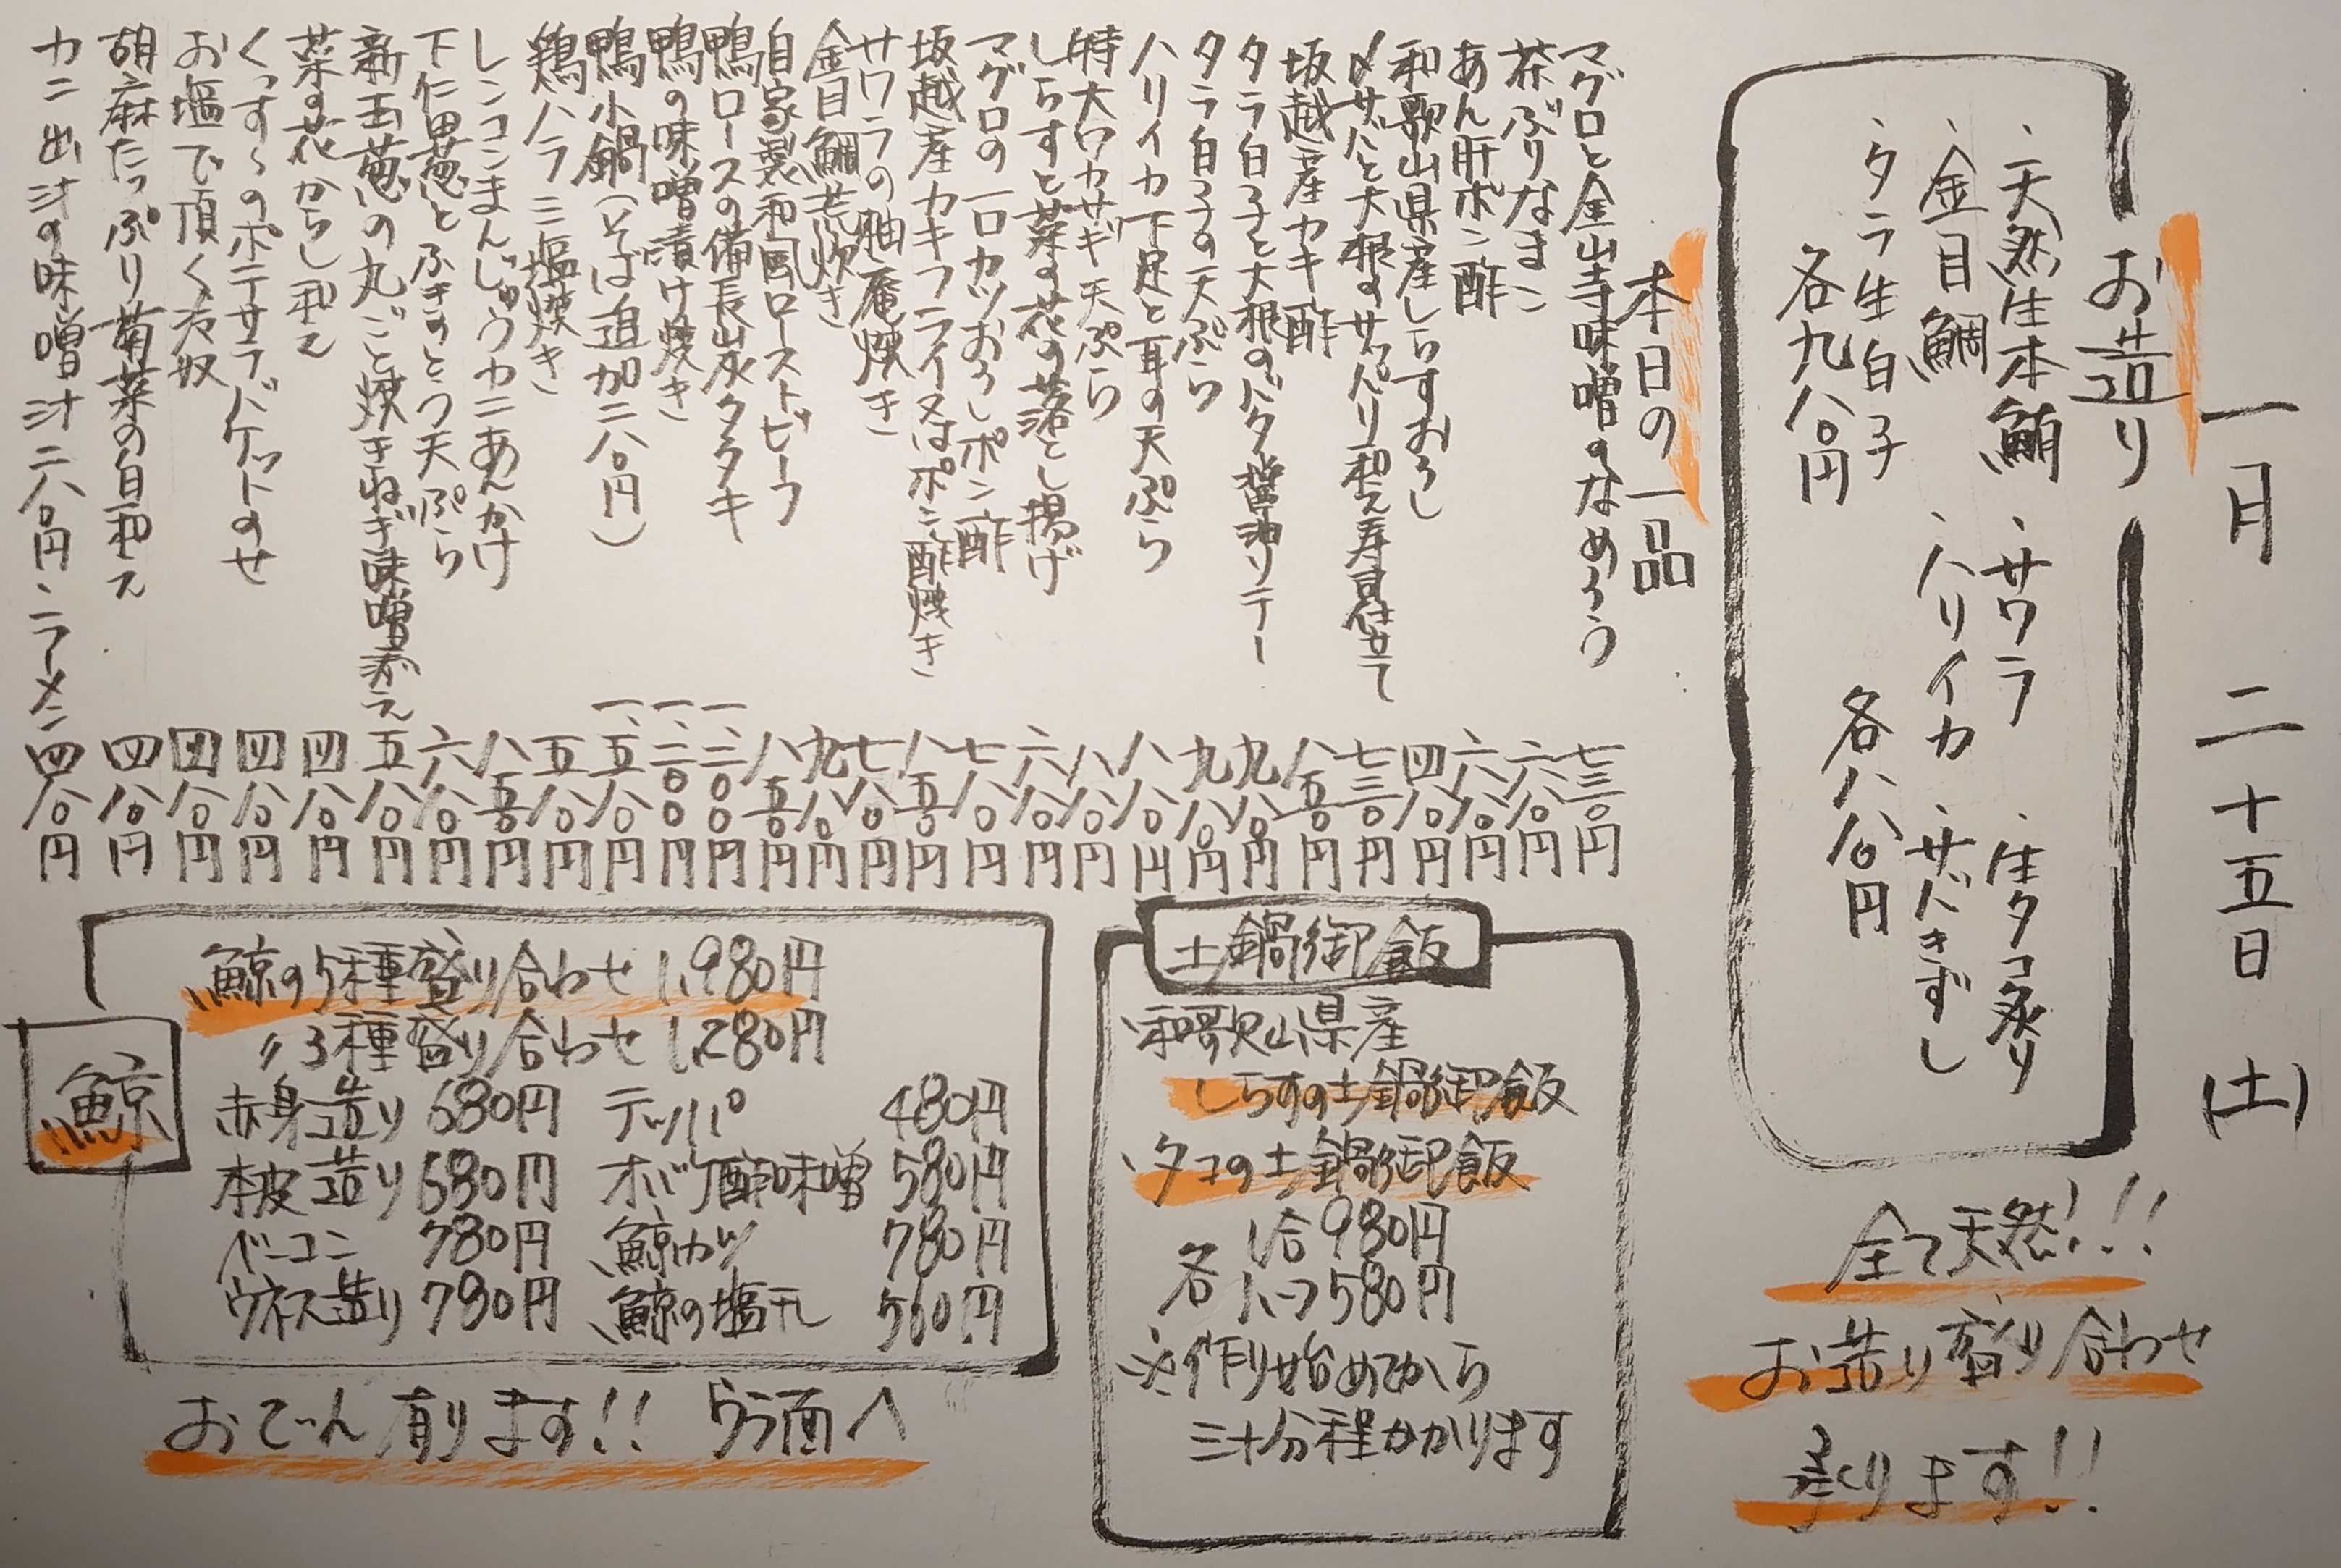 一月 二十五日 (土)
お造り
・天然生本鮪 ・サワラ ・生タコ炙り
・金目鯛 ・ハリイカ ・サバきずし
・タラ生白子
各九八〇円 各八八〇円
全て天然!!!
お造り盛り合わせ
承ります!!
本日の一品
マグロと金山寺味噌のなめろう 七三〇円
茶ぶりなまこ 六八〇円
あん肝ポン酢 六八〇円
和歌山県産しらすおろし 四八〇円
〆サバと大根のサッパリ和え寿司仕立て 七三〇円
坂越産カキ酢 八五〇円
タラ白子と大根のバター醤油ソテー 九八〇円
タラ白子の天ぷら 九八〇円
ハリイカ下足と耳の天ぷら 八八〇円
特大ワカサギ天ぷら 八八〇円
しらすと菜の花の落とし揚げ 六八〇円
マグロの一口カツおろしポン酢 七八〇円
坂越産カキフライ又はポン酢焼き 八五〇円
サワラの柚庵焼き 七八〇円
金目鯛荒炊き 九八〇円
自家製和風ローストビーフ 八五〇円
鴨ロースの備長炭タタキ 一、二〇〇円
鴨の味噌漬け焼き 一、二〇〇円
鴨小鍋(そば追加二八〇円) 一、五八〇円
鶏ハラミ塩焼き 五八〇円
レンコンまんじゅうカニあんかけ 八五〇円
下仁田葱とふきのとう天ぷら 六八〇円
新玉葱の丸ごと焼きねぎ味噌添え 五八〇円
菜の花からし和え 四八〇円
くっすぅのポテサラバケットのせ 四八〇円
お塩で頂く冷奴 四八〇円
胡麻たっぷり菊菜の白和え 四八〇円
カニ出汁の味噌汁二八〇円・ラーメン四八〇円
土鍋御飯
・和歌山県産
しらすの土鍋御飯
・タコの土鍋御飯
各 1合 980円
ハーフ 580円
※作り始めてから
三十分程かかります
鯨
鯨の5種盛り合わせ 1,980円
〃3種盛り合わせ 1,280円
赤身造り 680円 テッパ 480円
本皮造り 680円 オバケ酢味噌 580円
ベーコン 780円 鯨カツ 780円
ウネス造り 780円 鯨の塩干し 560円
おでん有ります!! ウラ面へ